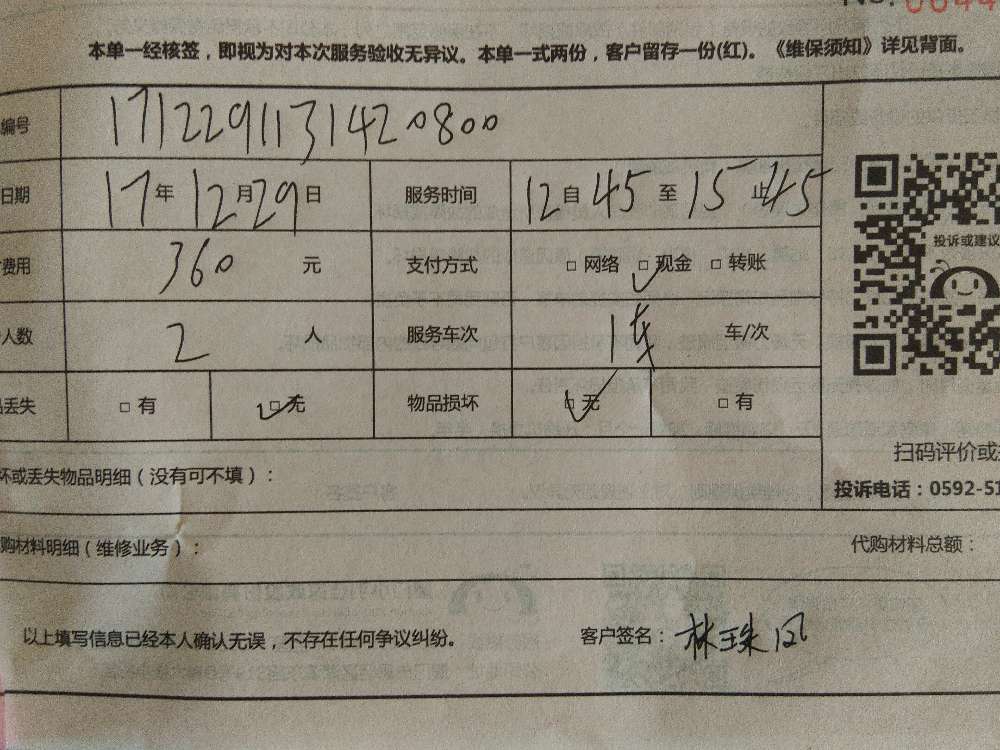 No.
本单一经核签，即视为对本次服务验收无异议。本单一式两份，客户留存一份(红)。《维保须知》详见背面。
编号 1712291131420800
日期 17年12月29日 服务时间 12自45至15止45
费用 360 元 支付方式 □ 网络 ☑ 现金 □ 转账
人数 2 人 服务车次 1车 车/次
丢失 □ 有 ☑ 无 物品损坏 ☑ 无 □ 有
投诉或建议
扫码评价或
坏或丢失物品明细（没有可不填）：
投诉电话：0592-51
购材料明细（维修业务）： 代购材料总额：
以上填写信息已经本人确认无误，不存在任何争议纠纷。 客户签名：林珠凤